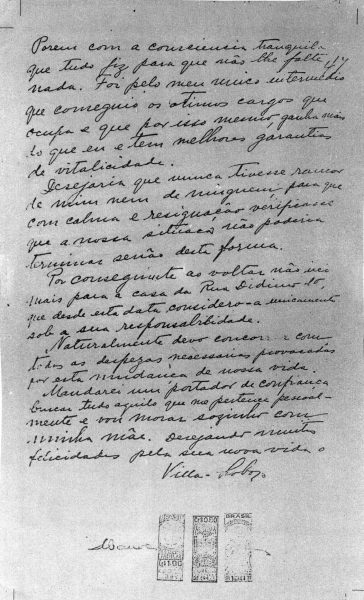 Porem com a consciencia tranquila
que tudo fiz para que não lhe falte
nada. Foi pelo meu unico intermedio
que conseguio os otimos cargos que
ocupa e que por isso mesmo, ganha mais
do que eu e tem melhores garantias
de vitalicidade.
Desejaria que nunca tivesse rancor
de mim nem de ninguem, para que
com calma e resignação verificasse
que a nossa situação não poderia
terminar senão desta forma.
Por conseguinte ao voltar não irei
mais para a casa da Rua Didimo 10,
que desde esta data considero-a unicamente
sob a sua responsabilidade.
Naturalmente devo com
todas as despezas necessarias provocadas
por esta mudança de nossa vida.
Mandarei um portador de confiança
buscar tudo aquilo que me pertence pessoal-
mente e vou morar sozinho com
minha mãe. Desejando muitas
felicidades pela sua nova vida o
Villa-Lobos
BRASIL